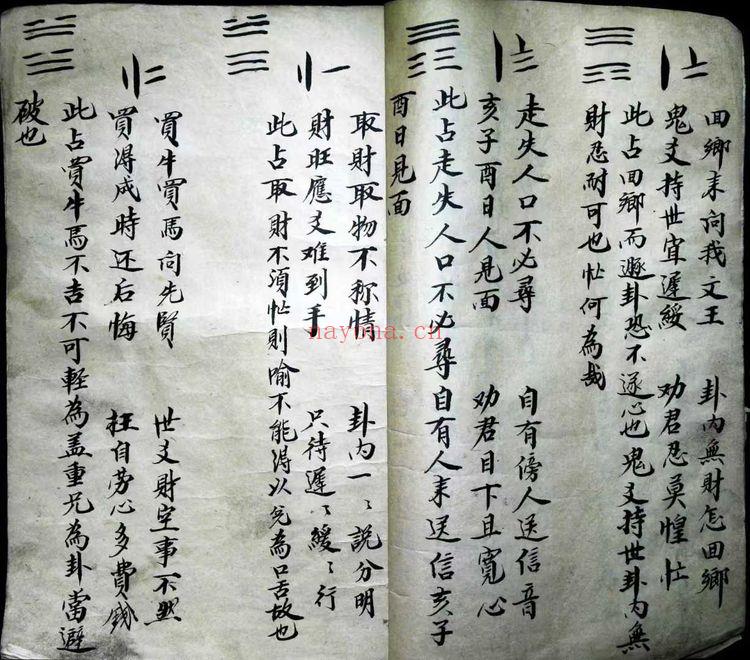 回鄉来问我文王 卦内無財怎回鄉
鬼爻持世宜遲綏 劝君忍莫惶忙
此占回鄉而遯卦恐不遂心也鬼爻持世卦内無
財忍耐可也忙何為哉
走失人口不必尋 自有傍人送信音
亥子酉日人見面 劝君目下且寬心
此占走失人口不必尋自有人来送信亥子
酉日見面
取財取物不称情 卦内一々說分明
財旺應爻难到手 只待遲々緩々行
此占取財不須忙則喻不能得以兑為口舌故也
買牛買馬问先賢 世爻財空事不然
買得成時还后悔 枉自劳心多費錢
此占買牛馬不吉不可軽為盖重兄為卦當避
破也
nayona.cn